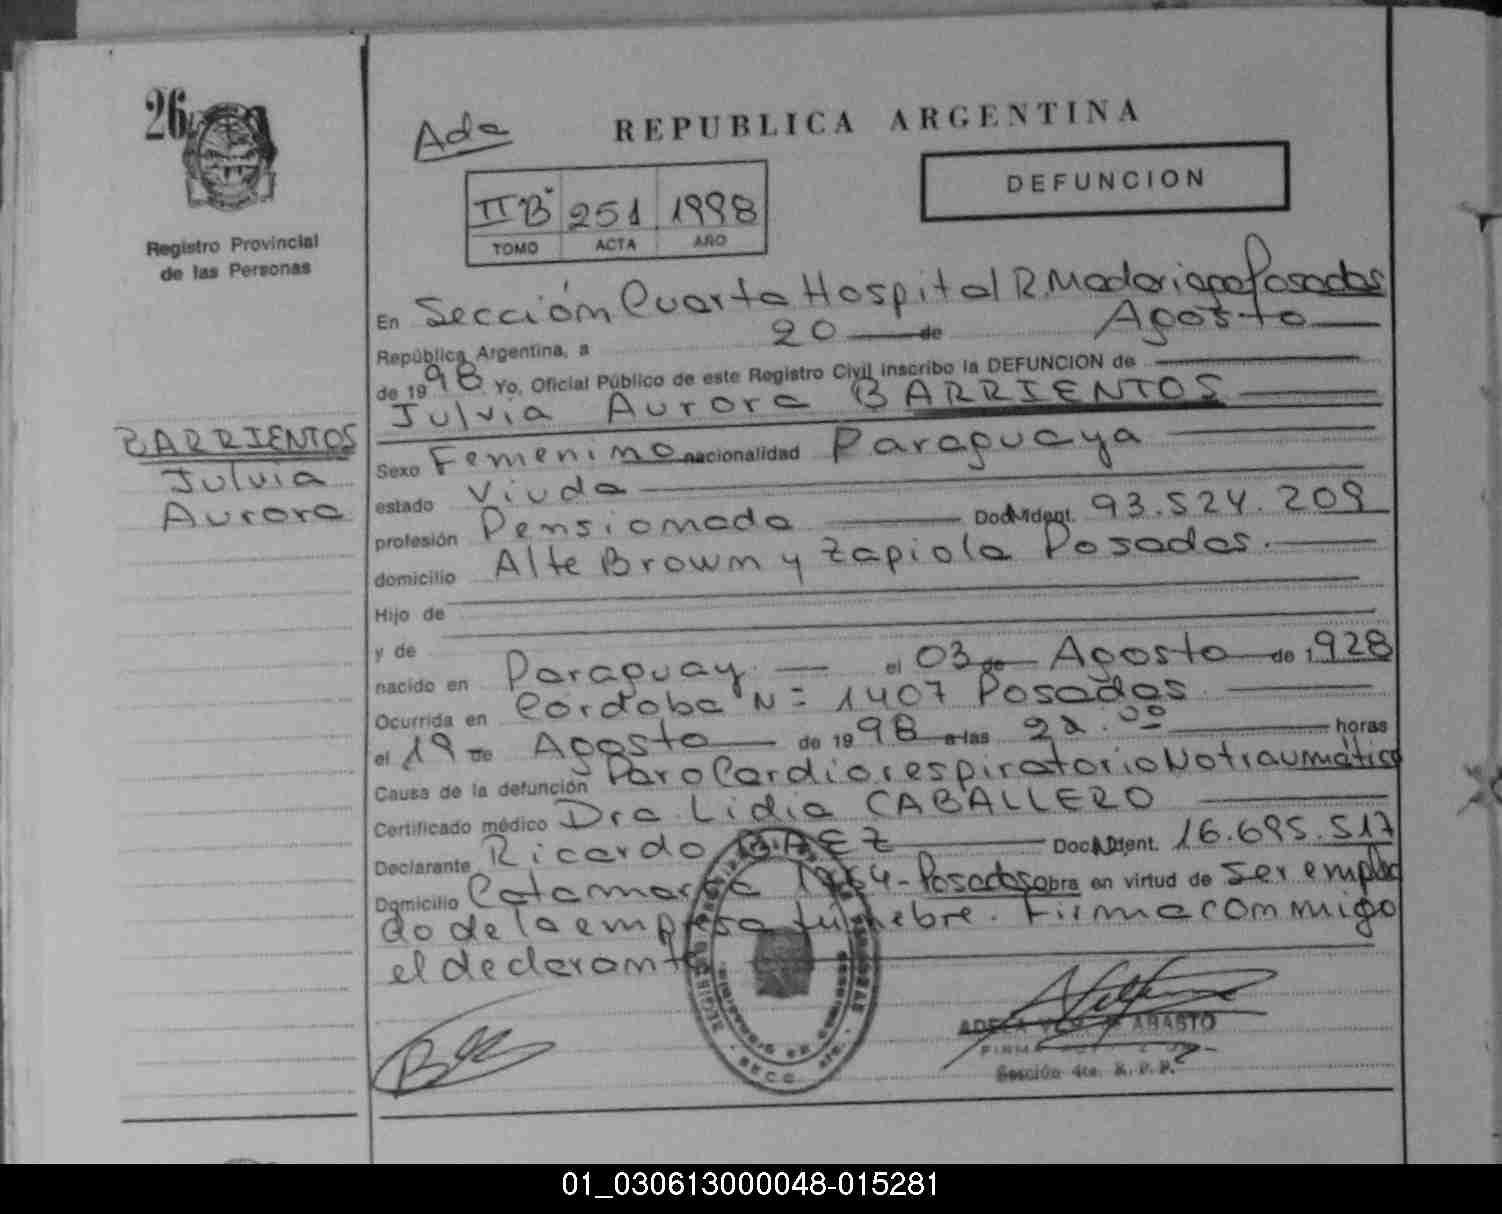 26
Registro Provincial
de las Personas
BARRIENTOS
Julvia
Aurora
Ada
REPUBLICA ARGENTINA
DEFUNCION
II B 251 1998
TOMO ACTA AÑO
En Sección Cuarta Hospital R. Madariaga Posadas
República Argentina, a 20 de Agosto
de 1998 Yo, Oficial Público de este Registro Civil inscribo la DEFUNCION de
Julvia Aurora BARRIENTOS
Sexo Femenino nacionalidad Paraguaya
estado Viuda
profesión Pensionada Doc. Ident. 93.524.209
domicilio Alte Brown y Zapiola Posadas.
Hijo de
y de
nacido en Paraguay. el 03 de Agosto de 1928
Ocurrida en Cordoba Nº 1407 Posadas
el 19 de Agosto de 1998 a las 22.00 horas
Causa de la defunción Paro Cardiorespiratorio No traumático
Certificado médico Dra. Lidia CABALLERO
Declarante Ricardo BAEZ Doc. Ident. 16.695.517
Domicilio Catamarca - Posadas obra en virtud de Ser emplea
do de la empresa fúnebre. Firma conmigo
el declarante
Sección 4ta. R. P. P.
01_030613000048-015281